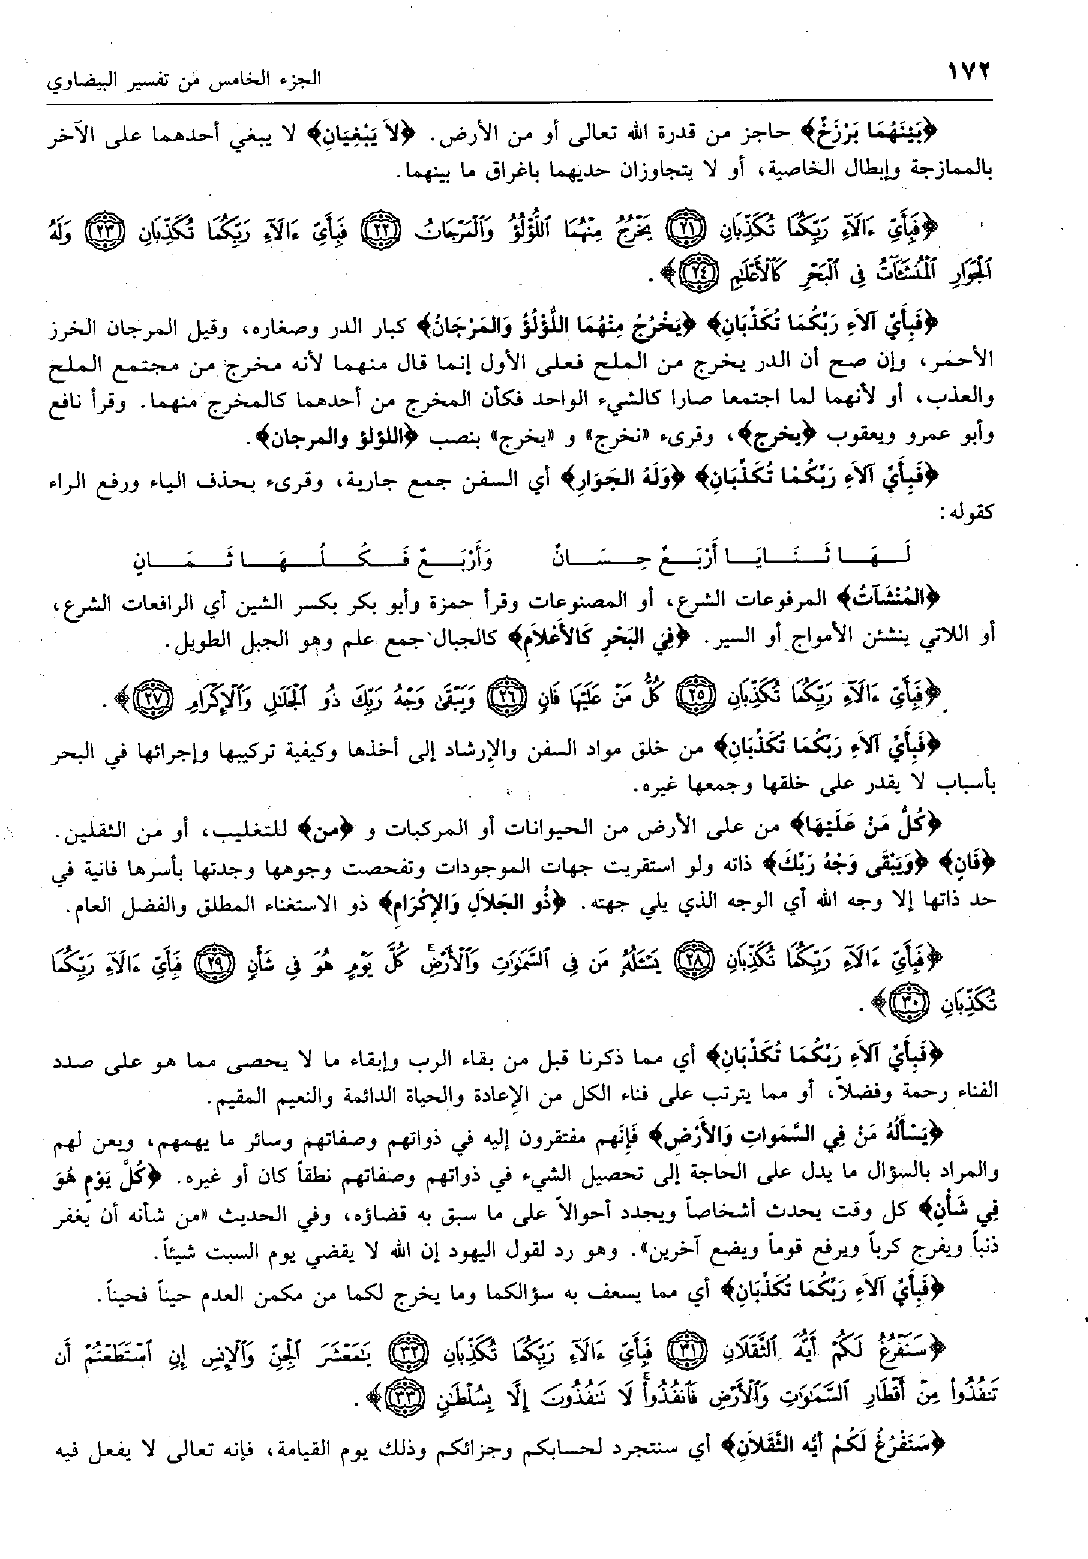 ١٧٢
الجزء الخامس من تفسير البيضاوي
﴿بَيْنَهُمَا بَرْزَخٌ﴾ حاجز من قدرة الله تعالى أو من الأرض. ﴿لاَ يَبْغِيَان﴾ لا يبغي أحدهما على الآخر
بالممازجة وإبطال الخاصية، أو لا يتجاوزان حديهما بإغراق ما بينهما.
﴿فَبِأَيِّ ءَالَآءِ رَبِّكُمَا تُكَذِّبَانِ ﴿٢١﴾ يَخْرُجُ مِنْهُمَا اللُّؤْلُؤُ وَٱلْمَرْجَانُ ﴿٢٢﴾ فَبِأَيِّ ءَالَآءِ رَبِّكُمَا تُكَذِّبَانِ ﴿٢٣﴾ وَلَهُ
ٱلْجَوَارِ ٱلْمُنشَـَٔاتُ فِى ٱلْبَحْرِ كَٱلْأَعْلَٰمِ ﴿٢٤﴾﴾.
﴿فَبِأَيِّ آلاَءِ رَبِّكُمَا تُكَذِّبَانِ﴾ ﴿يَخْرُجُ مِنْهُمَا اللُّؤْلُؤُ وَالمَرْجَانُ﴾ كبار الدر وصغاره، وقيل المرجان الخرز
الأحمر، وإن صح أن الدر يخرج من الملح فعلى الأول إنما قال منهما لأنه مخرج من مجتمع الملح
والعذب، أو لأنهما لما اجتمعا صارا كالشيء الواحد فكأن المخرج من أحدهما كالمخرج منهما. وقرأ نافع
وأبو عمرو ويعقوب ﴿يخرج﴾، وقرىء «نخرج» و «يخرج» بنصب ﴿اللؤلؤ والمرجان﴾.
﴿فَبِأَيِّ آلاَءِ رَبِّكُمَا تُكَذِّبَانِ﴾ ﴿وَلَهُ الجَوَارِ﴾ أي السفن جمع جارية، وقرىء بحذف الياء ورفع الراء
كقوله:
لَهَا ثَنَايَا أَرْبَعٌ حِسَانٌ وَأَرْبَعٌ فَكُلُّهَا ثَمَانِ
﴿المُنْشَآتُ﴾ المرفوعات الشرع، أو المصنوعات وقرأ حمزة وأبو بكر بكسر الشين أي الرافعات الشرع،
أو اللاتي ينشئن الأمواج أو السير. ﴿فِي البَحْرِ كَالأَعْلاَمِ﴾ كالجبال جمع علم وهو الجبل الطويل.
﴿فَبِأَيِّ ءَالَآءِ رَبِّكُمَا تُكَذِّبَانِ ﴿٢٥﴾ كُلُّ مَنْ عَلَيْهَا فَانٍ ﴿٢٦﴾ وَيَبْقَىٰ وَجْهُ رَبِّكَ ذُو ٱلْجَلَٰلِ وَٱلْإِكْرَامِ ﴿٢٧﴾﴾.
﴿فَبِأَيِّ آلاَءِ رَبِّكُمَا تُكَذِّبَانِ﴾ من خلق مواد السفن والإرشاد إلى أخذها وكيفية تركيبها وإجرائها في البحر
بأسباب لا يقدر على خلقها وجمعها غيره.
﴿كُلُّ مَنْ عَلَيْهَا﴾ من على الأرض من الحيوانات أو المركبات و ﴿من﴾ للتغليب، أو من الثقلين.
﴿فَانٍ﴾ ﴿وَيَبْقَى وَجْهُ رَبِّكَ﴾ ذاته ولو استقريت جهات الموجودات وتفحصت وجوهها وجدتها بأسرها فانية في
حد ذاتها إلا وجه الله أي الوجه الذي يلي جهته. ﴿ذُو الجَلاَلِ وَالإِكْرَامِ﴾ ذو الاستغناء المطلق والفضل العام.
﴿فَبِأَيِّ ءَالَآءِ رَبِّكُمَا تُكَذِّبَانِ ﴿٢٨﴾ يَسْـَٔلُهُۥ مَن فِى ٱلسَّمَٰوَٰتِ وَٱلْأَرْضِ كُلَّ يَوْمٍ هُوَ فِى شَأْنٍ ﴿٢٩﴾ فَبِأَيِّ ءَالَآءِ رَبِّكُمَا
تُكَذِّبَانِ ﴿٣٠﴾﴾.
﴿فَبِأَيِّ آلاَءِ رَبِّكُمَا تُكَذِّبَانِ﴾ أي مما ذكرنا قبل من بقاء الرب وإبقاء ما لا يحصى مما هو على صدد
الفناء رحمة وفضلاً، أو مما يترتب على فناء الكل من الإعادة والحياة الدائمة والنعيم المقيم.
﴿يَسْأَلُهُ مَنْ فِي السَّمَواتِ وَالأَرْضِ﴾ فإنهم مفتقرون إليه في ذواتهم وصفاتهم وسائر ما يهمهم، ويعن لهم
والمراد بالسؤال ما يدل على الحاجة إلى تحصيل الشيء في ذواتهم وصفاتهم نطقاً كان أو غيره. ﴿كُلَّ يَوْمٍ هُوَ
فِي شَأْنٍ﴾ كل وقت يحدث أشخاصاً ويجدد أحوالاً على ما سبق به قضاؤه، وفي الحديث «من شأنه أن يغفر
ذنباً ويفرج كرباً ويرفع قوماً ويضع آخرين». وهو رد لقول اليهود إن الله لا يقضي يوم السبت شيئاً.
﴿فَبِأَيِّ آلاَءِ رَبِّكُمَا تُكَذِّبَانِ﴾ أي مما يسعف به سؤالكما وما يخرج لكما من مكمن العدم حيناً فحيناً.
﴿سَنَفْرُغُ لَكُمْ أَيُّهَ ٱلثَّقَلَانِ ﴿٣١﴾ فَبِأَيِّ ءَالَآءِ رَبِّكُمَا تُكَذِّبَانِ ﴿٣٢﴾ يَٰمَعْشَرَ ٱلْجِنِّ وَٱلْإِنسِ إِنِ ٱسْتَطَعْتُمْ أَن
تَنفُذُوا۟ مِنْ أَقْطَارِ ٱلسَّمَٰوَٰتِ وَٱلْأَرْضِ فَٱنفُذُوا۟ لَا تَنفُذُونَ إِلَّا بِسُلْطَٰنٍ ﴿٣٣﴾﴾.
﴿سَنَفْرُغُ لَكُمْ أَيُّه الثَّقَلاَنِ﴾ أي سنتجرد لحسابكم وجزائكم وذلك يوم القيامة، فإنه تعالى لا يفعل فيه